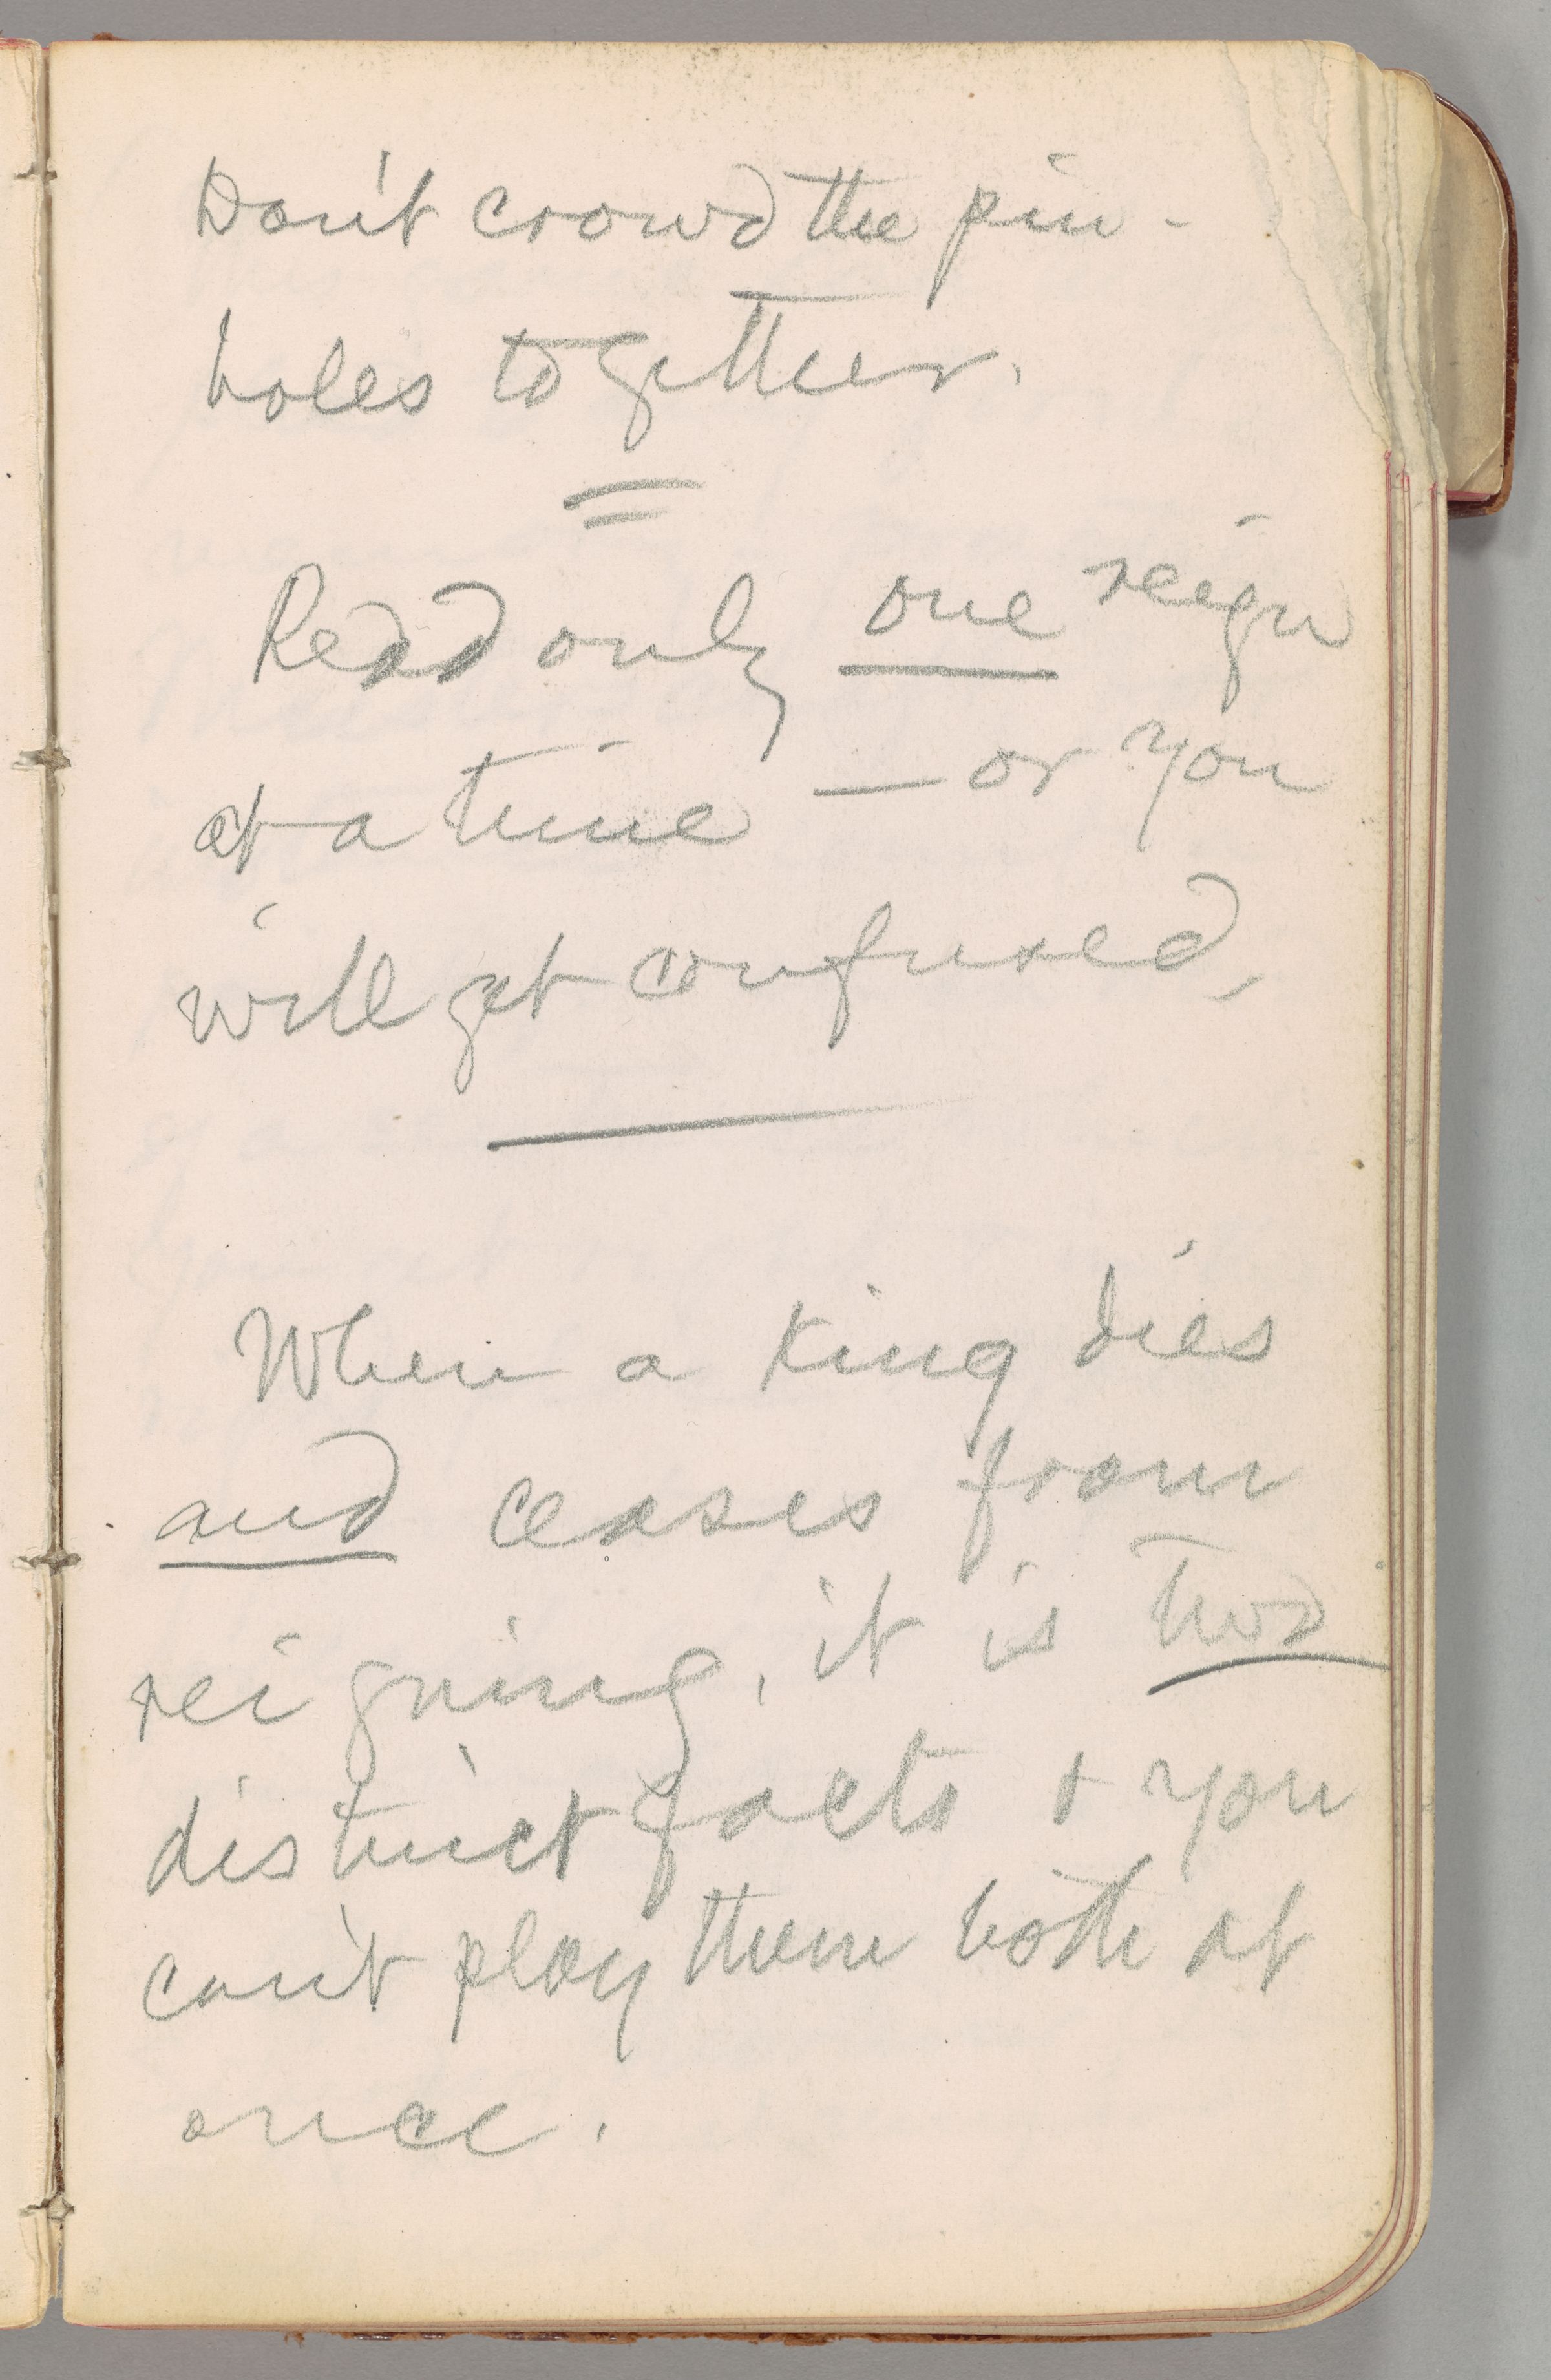 Don't crowd the pin-
holes together.
Read only one reign
at a time — or you
will get confused.
When a King dies
and ceases from
reigning, it is two
distinct facts & you
can't play them both at
once.